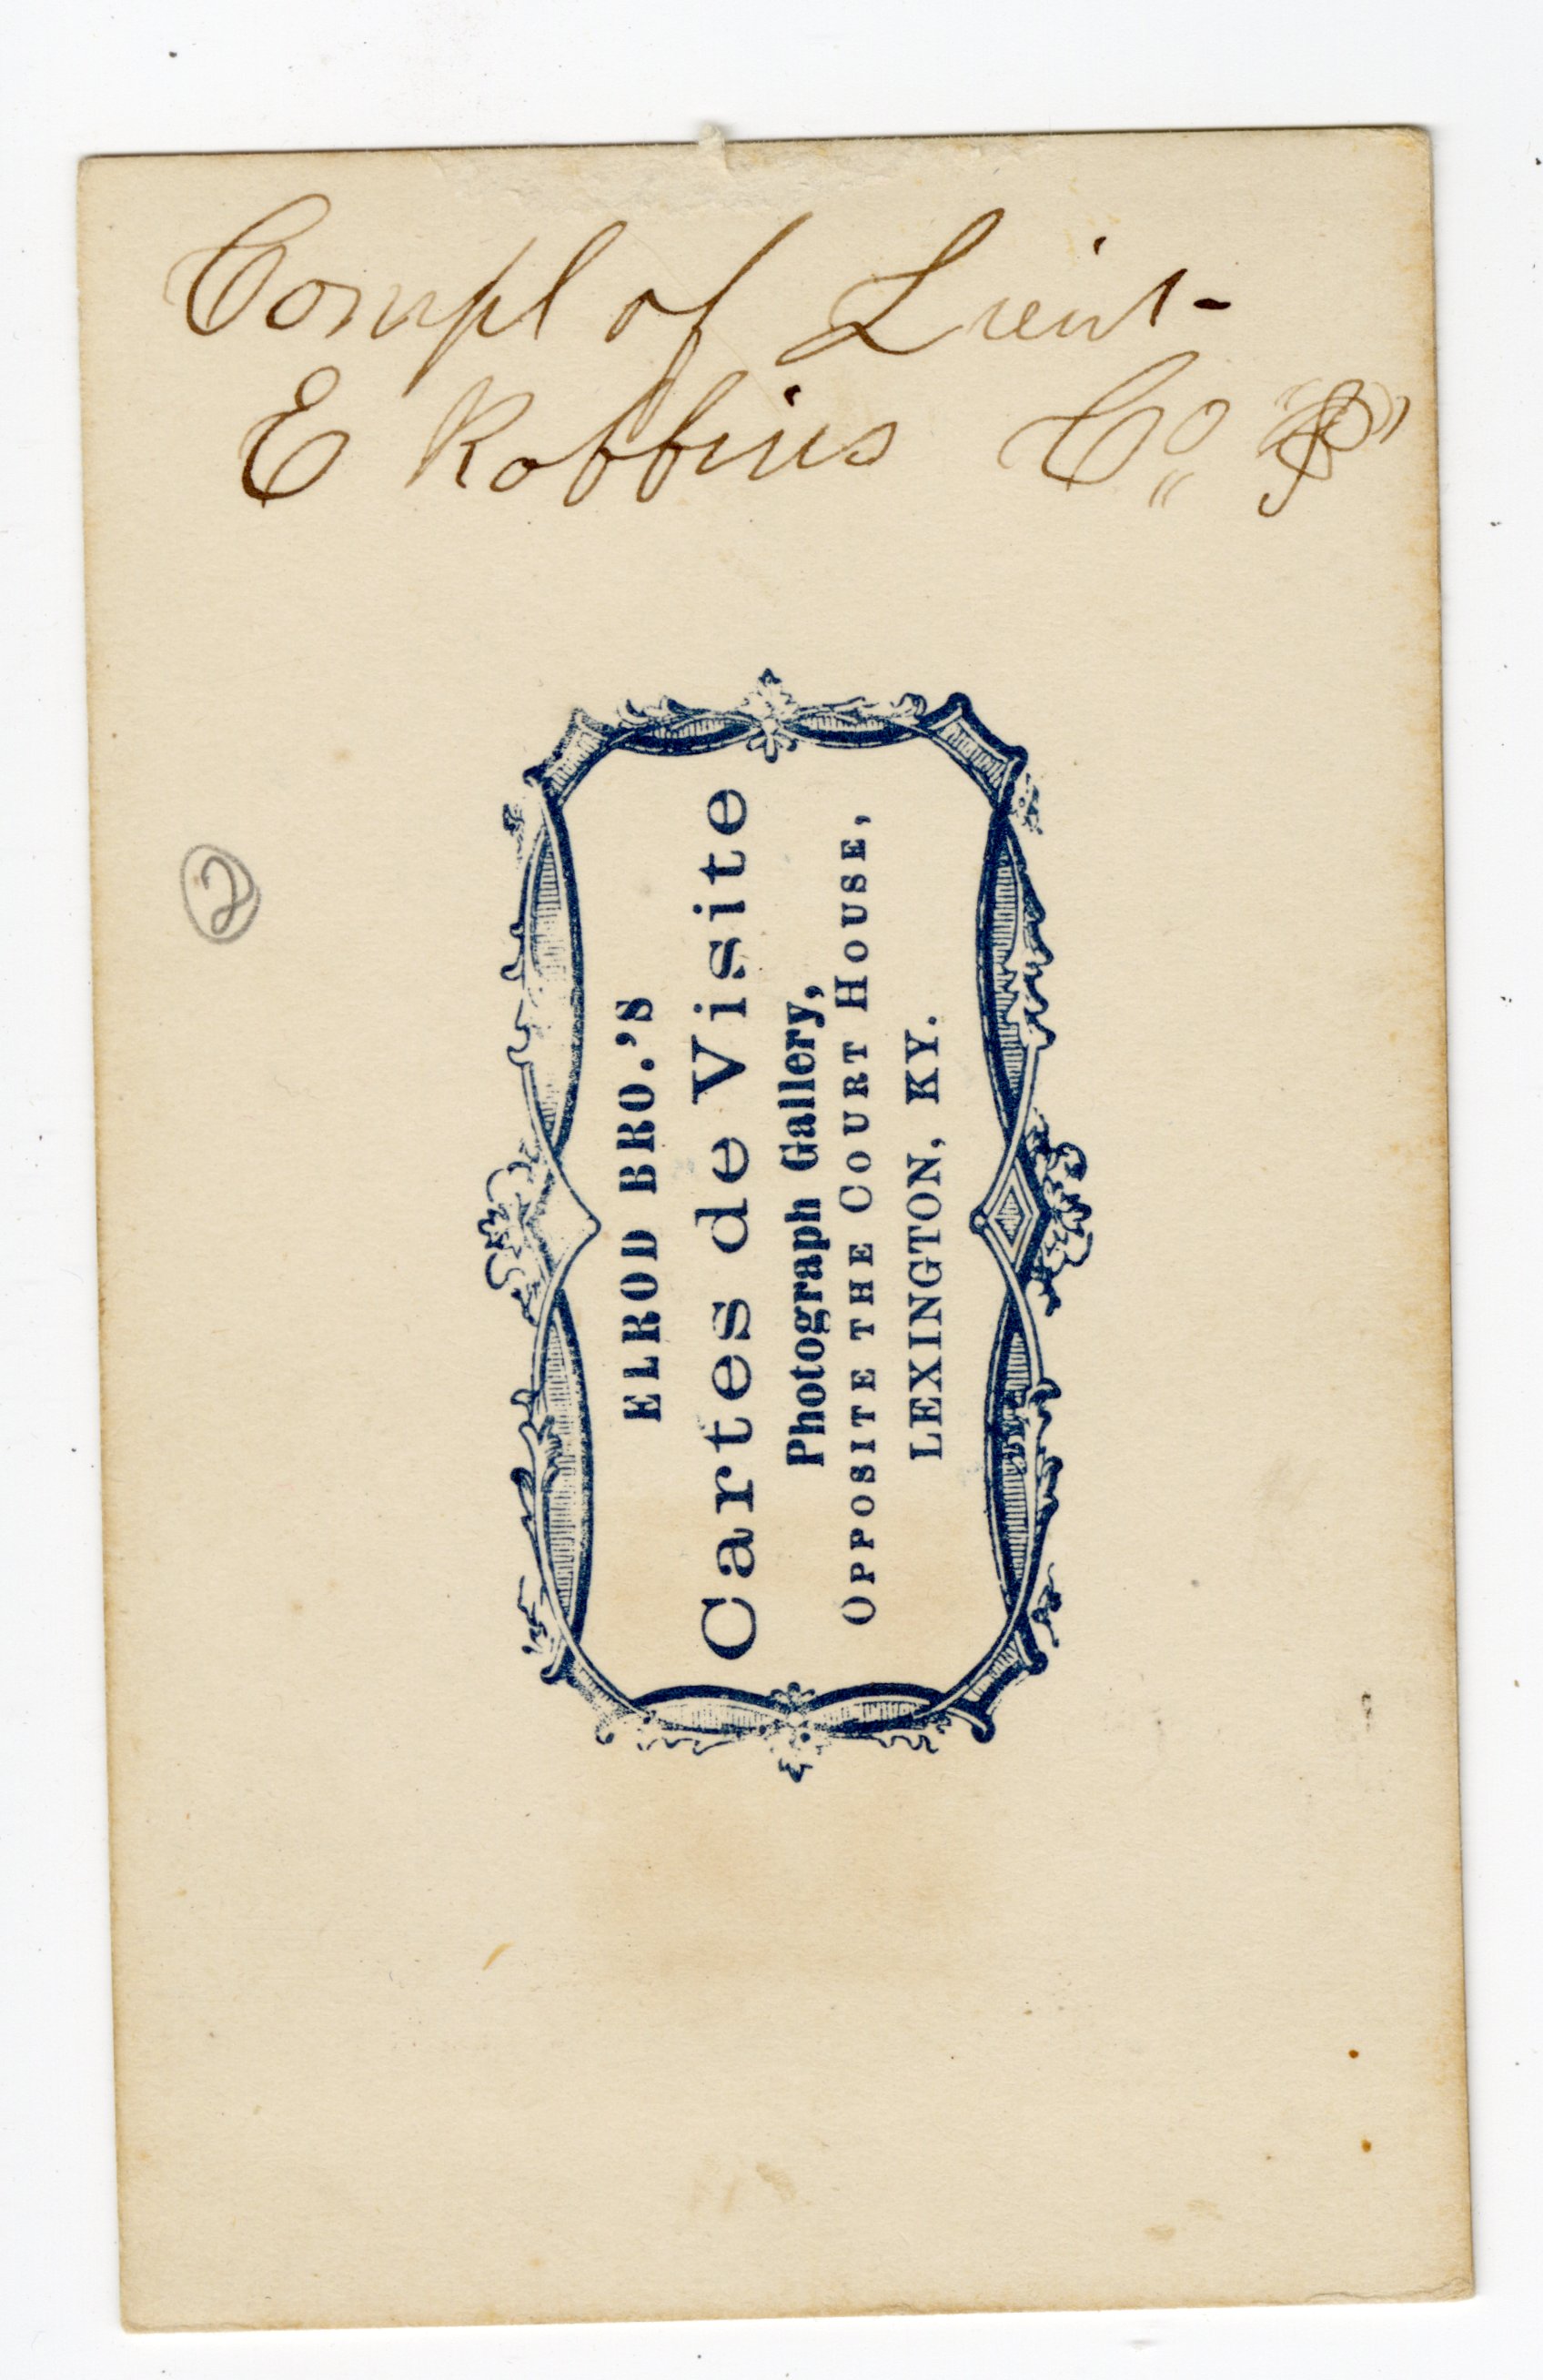 Compl of Lieut-
E Robbins Co
2
ELROD BRO.'S
Cartes de Visite
Photograph Gallery,
OPPOSITE THE COURT HOUSE,
LEXINGTON, KY.